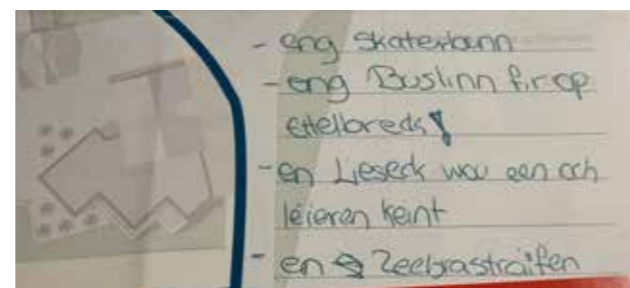 - eng Skaterbunn
- eng Buslinn fir op
Ettelbreck!
- en Lieseck wou een och
léieren keint
- en Zeebrasträifen